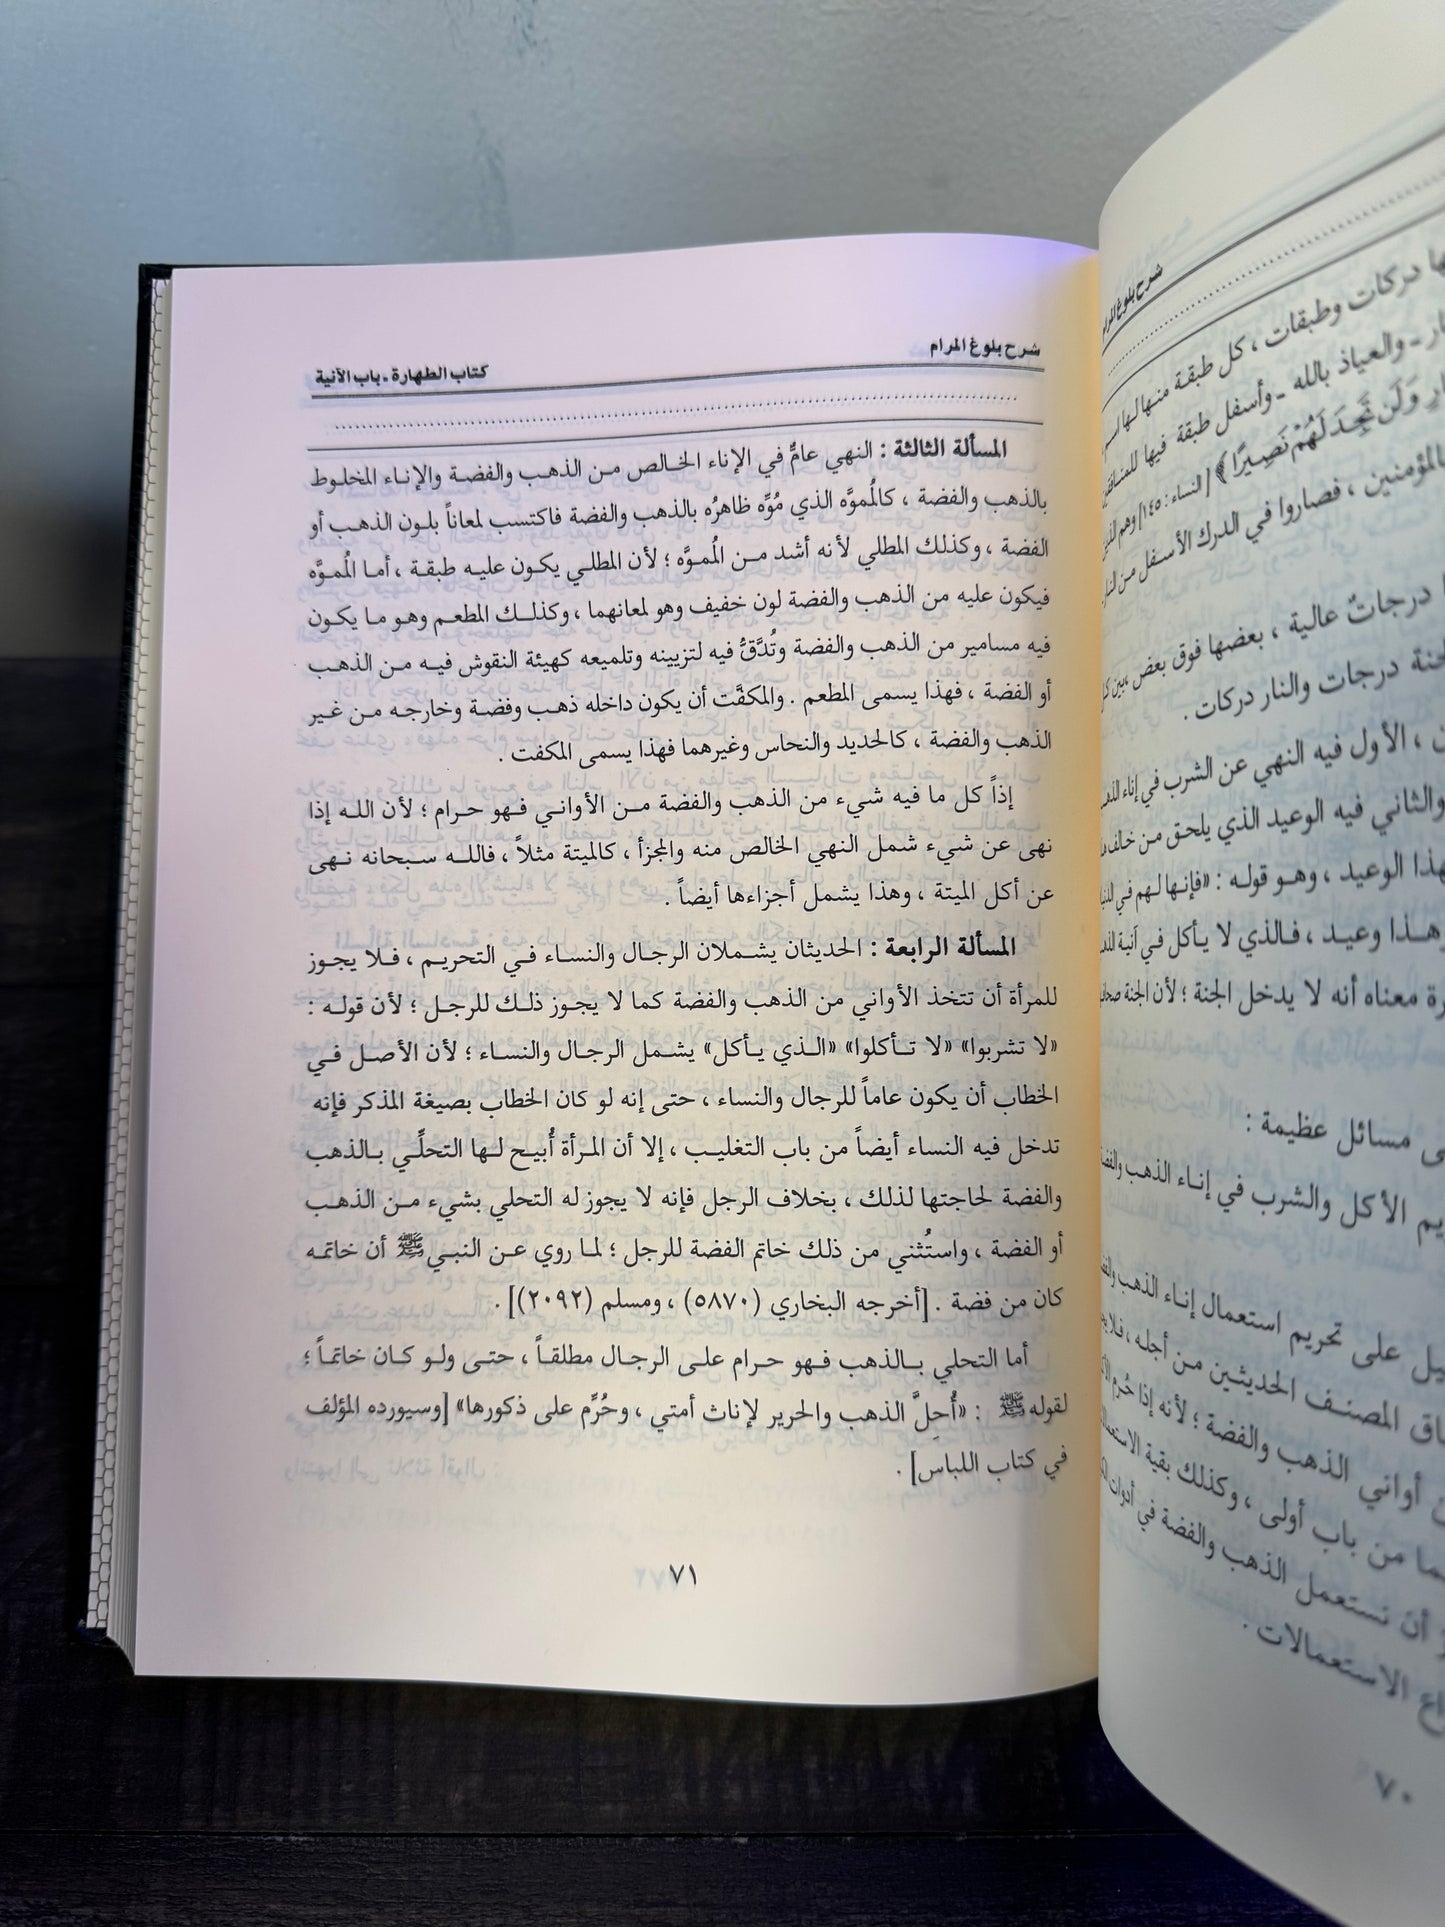 شرح بلوغ المرام
كتاب الطهارة ـ باب الآنية
المسألة الثالثة : النهي عامٌّ في الإناء الخالص من الذهب والفضة والإناء المخلوط
بالذهب والفضة ، كالمُموَّه الذي مُوِّه ظاهرُه بالذهب والفضة فاكتسب لمعاناً بلون الذهب أو
الفضة ، وكذلك المطلي لأنه أشد من المُموَّه ؛ لأن المطلي يكون عليه طبقة ، أما المُموَّه
فيكون عليه من الذهب والفضة لون خفيف وهو لمعانهما ، وكذلك المطعم وهو ما يكون
فيه مسامير من الذهب والفضة وتُدَّقُّ فيه لتزيينه وتلميعه كهيئة النقوش فيه من الذهب
أو الفضة ، فهذا يسمى المطعم . والمكفَّت أن يكون داخله ذهب وفضة وخارجه من غير
الذهب والفضة ، كالحديد والنحاس وغيرهما فهذا يسمى المكفت .
إذاً كل ما فيه شيء من الذهب والفضة من الأواني فهو حرام ؛ لأن الله إذا
نهى عن شيء شمل النهي الخالص منه والمجزأ ، كالميتة مثلاً ، فالله سبحانه نهى
عن أكل الميتة ، وهذا يشمل أجزاءها أيضاً .
المسألة الرابعة : الحديثان يشملان الرجال والنساء في التحريم ، فلا يجوز
للمرأة أن تتخذ الأواني من الذهب والفضة كما لا يجوز ذلك للرجل ؛ لأن قوله :
«لا تشربوا» «لا تأكلوا» «الذي يأكل» يشمل الرجال والنساء ؛ لأن الأصل في
الخطاب أن يكون عاماً للرجال والنساء ، حتى إنه لو كان الخطاب بصيغة المذكر فإنه
تدخل فيه النساء أيضاً من باب التغليب ، إلا أن المرأة أُبيح لها التحلِّي بالذهب
والفضة لحاجتها لذلك ، بخلاف الرجل فإنه لا يجوز له التحلي بشيء من الذهب
أو الفضة ، واستُثني من ذلك خاتم الفضة للرجل ؛ لما روي عن النبي ﷺ أن خاتمه
كان من فضة . [أخرجه البخاري (٥٨٧٠) ، ومسلم (٢٠٩٢)] .
أما التحلي بالذهب فهو حرام على الرجال مطلقاً ، حتى ولو كان خاتماً ؛
لقوله ﷺ : «أُحِلَّ الذهب والحرير لإناث أمتي ، وحُرِّم على ذكورها» [وسيورده المؤلف
في كتاب اللباس] .
٧١
شرح بلوغ المرام
دركات وطبقات ، كل طبقة منها لها
ـ والعياذ بالله ـ وأسفل طبقة فيها
وَلَن تَجِدَ لَهُمْ نَصِيرًا﴾ [النساء : ١٤٥] وهم
المؤمنين ، فصاروا في الدرك الأسفل من
درجاتٌ عالية ، بعضها فوق بعض ، بين
درجات والنار دركات .
، الأول فيه النهي عن الشرب في إناء
والثاني فيه الوعيد الذي يلحق من خالف
الوعيد ، وهو قوله : «فإنها لهم في
هذا وعيد ، فالذي لا يأكل في آنية
معناه أنه لا يدخل الجنة ؛ لأن الجنة
مسائل عظيمة :
الأكل والشرب في إناء الذهب
على تحريم استعمال إناء الذهب
المصنف الحديثين من أجله ،
أواني الذهب والفضة ؛ لأنه إذا حُرم
من باب أولى ، وكذلك بقية
أن تستعمل الذهب والفضة في أدوات
الاستعمالات .
٧٠